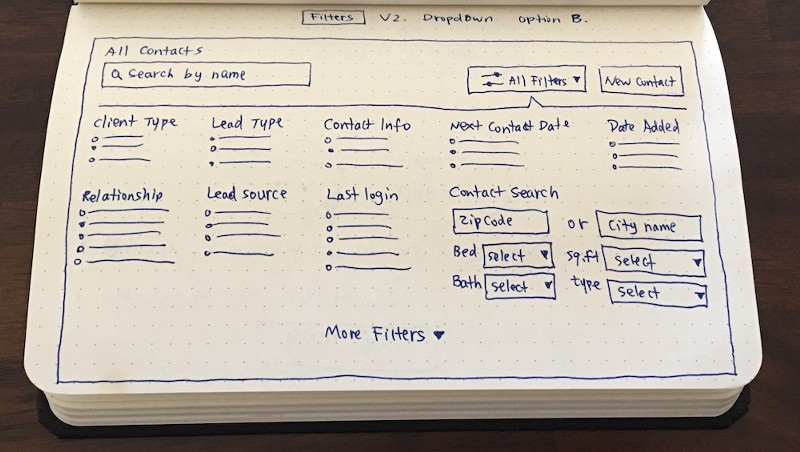 Filters V2. Dropdown option B.
All Contacts
Search by name
All Filters
New Contact
Client Type Lead Type Contact Info Next Contact Date Date Added
Relationship Lead source Last login Contact Search
Zip Code or City name
Bed select sq.ft select
Bath select type select
More Filters